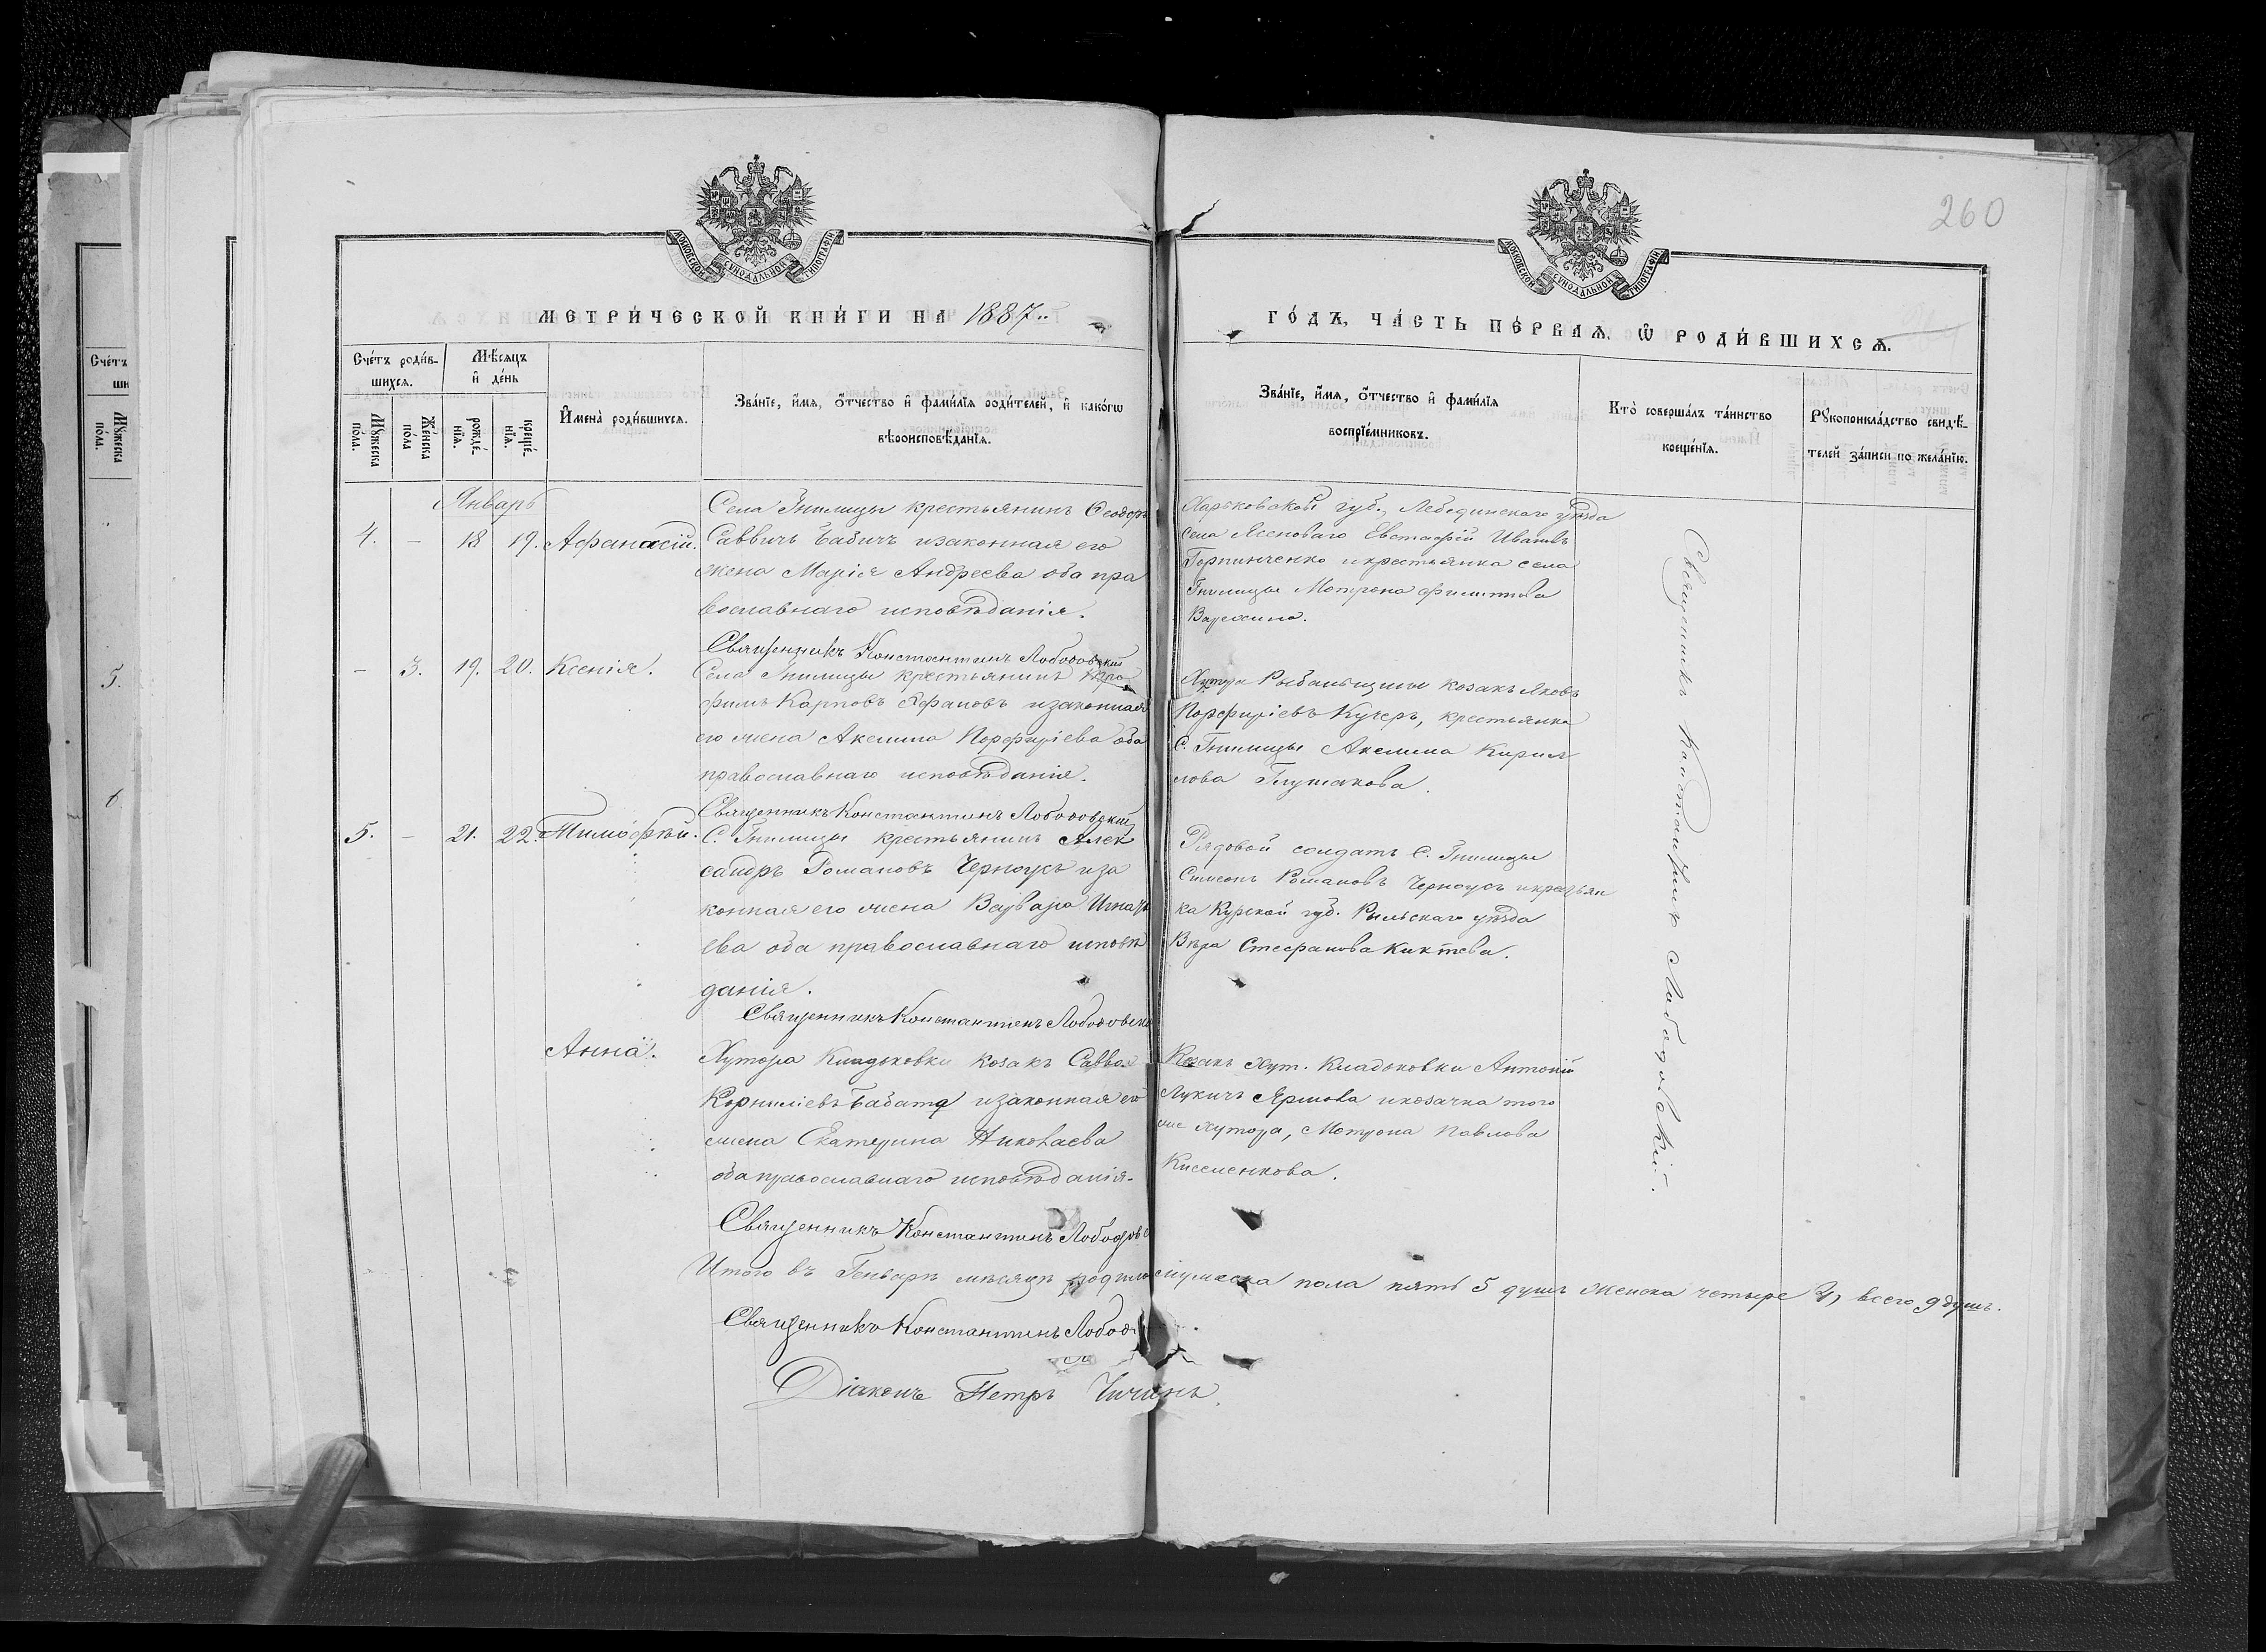 260
МОСКОВСКОЙ СѴНОДАЛЬНОЙ ТИПОГРАФІИ
МОСКОВСКОЙ СѴНОДАЛЬНОЙ ТИПОГРАФІИ
МЕТРИ́ЧЕСКОЙ КНИ́ГИ НА 1887
ГО́ДЪ, ЧА́СТЬ ПЕ́РВАѦ, Ѽ РОДИ́ВШИХСѦ.
Сче́тъ роди́в-
шихсѧ.
Мѣ́сѧцъ
и҆ де́нь
Мꙋ́жеска
по́ла.
Же́нска
по́ла
рожде́-
нїѧ.
креще́-
нїѧ.
И҆мена̀ роди́вшихсѧ.
Зва́нїе, и҆́мѧ, ѻ҆́тчество и҆ фами́лїѧ роди́телей, и҆ како́гѡ
вѣроисповѣ́данїѧ.
Зва́нїе, и҆́мѧ, ѻ҆́тчество и҆ фами́лїѧ
воспрїе́мниковъ.
Кто̀ соверша́лъ та́инство
креще́нїѧ.
Рꙋкоприкла́дство свидѣ́-
телей за́писи по жела́нїю.
Январь
4. - 18 19. Афанасій.
Села Гнилицы крестьянинъ Ѳеодоръ
Саввичъ Бабичъ изаконная его
жена Марія Андреева оба пра
вославнаго исповѣданія.
Священникъ Константинъ Лободовскій
Харьковской губ., Лебединскаго уѣзда
села Ясеноваго Евстафій Ивановъ
Горпинченко икрестьянка села
Гнилицы Мотрона Филипова
- 3. 19. 20. Ксенія.
Села Гнилицы крестьянинъ Тро
фимъ Карповъ изаконная
его жена Аксинія Порфиріева оба
православнаго исповѣданія.
Священникъ Константинъ Лободовскій
Хутора козакъ Яковъ
Порфиріевъ Кучеръ, крестьянка
С. Гнилицы Аксинья Кирил
лова Глушакова.
5. - 21. 22. Тимофѣй.
С. Гнилицы крестьянинъ Алек
сандръ Романовъ Черноусъ иза
конная его жена Варвара Игнать
ева оба православнаго исповѣ
данія.
Священникъ Константинъ Лободовскі
Рядовой солдатъ С. Гнилицы
Симеонъ Романовъ Черноусъ икрестьян
ка Курской губ. Рыльскаго уѣзда
Вѣра Стефанова
Анна.
Хутора Кладьковки козакъ Савва
Корниліевъ изаконная его
жена Екатерина Николаева
оба православнаго исповѣданія.
Священникъ Константинъ Лободовс
Козакъ хут. Кладьковки Антоній
Лукичъ Ярмола икозачка того
же хутора, Мотрона Павлова
Священникъ Константинъ Лободовскій.
Итого въ Генварѣ мѣсяцѣ родилось мужеска пола пять 5 душъ женска четыре 4, всего 9 душъ.
Священникъ Константинъ Лободо
Діаконъ Петръ
Сче́тъ
ши
Мꙋ́жеска
по́ла.
5.
6